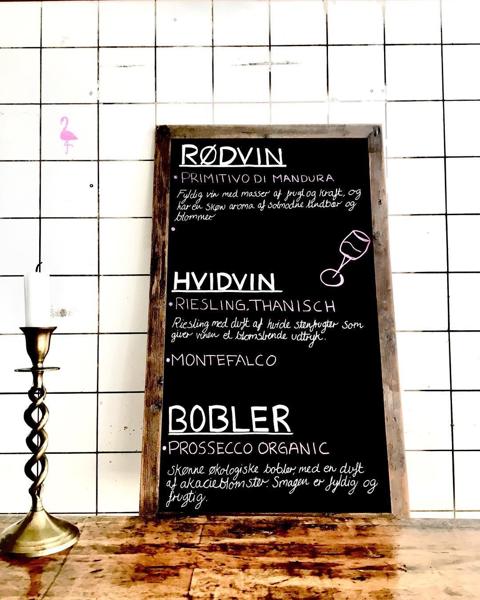 RØDVIN
• PRIMITIVO DI MANDURA
Fyldig vin med masser af frugt og kraft, og
har en skøn aroma af solmodne bær og
blommer
•
HVIDVIN
• RIESLING, THANISCH
Riesling med duft af hvide stenfrugter som
giver vinen et blomstrende udtryk.
• MONTEFALCO
BOBLER
• PROSSECCO ORGANIC
Skønne økologiske bobler, med en duft
af akacieblomster. Smagen er fyldig og
frugtig.